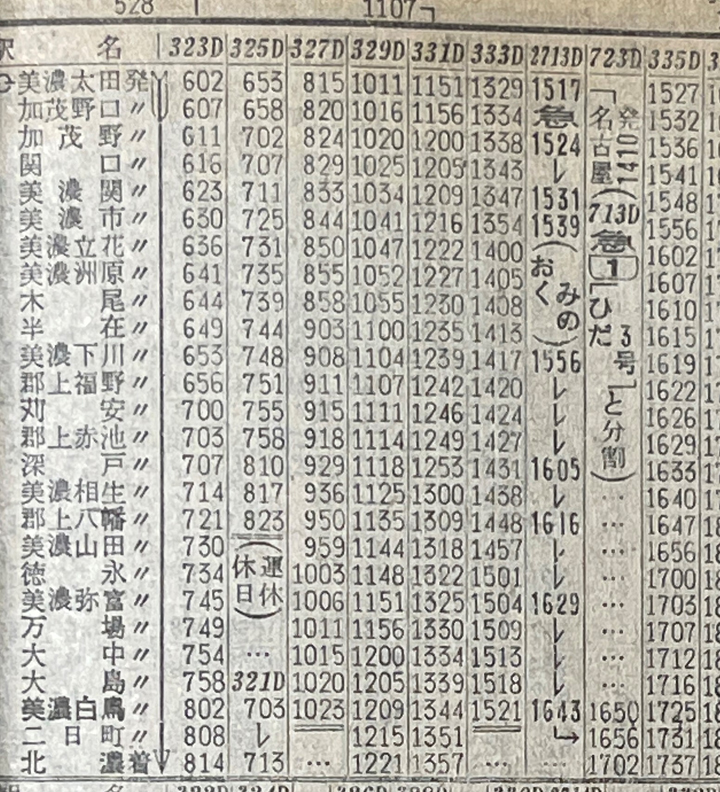 528 1107
駅 名 323D 325D 327D 329D 331D 333D 2713D 723D 335D
美濃太田発 602 653 815 1011 1151 1329 1517 1527
加茂野口〃 607 658 820 1016 1156 1334 急 1532
加茂野〃 611 702 824 1020 1200 1338 1524 1536
関口〃 616 707 829 1025 1205 1343 レ 1541
美濃関〃 623 711 833 1034 1209 1347 1531 1548
美濃市〃 630 725 844 1041 1216 1354 1539 1556
美濃立花〃 636 731 850 1047 1222 1400 1602
美濃洲原〃 641 735 855 1052 1227 1405 1607
木尾〃 644 739 858 1055 1230 1408 1610
半在〃 649 744 903 1100 1235 1413 1615
美濃下川〃 653 748 908 1104 1239 1417 1556 1619
郡上福野〃 656 751 911 1107 1242 1420 レ 1622
苅安〃 700 755 915 1111 1246 1424 レ 1626
郡上赤池〃 703 758 918 1114 1249 1427 レ 1629
深戸〃 707 810 929 1118 1253 1431 1605 1633
美濃相生〃 714 817 936 1125 1300 1438 レ … 1640
郡上八幡〃 721 823 950 1135 1309 1448 1616 … 1647
美濃山田〃 730 959 1144 1318 1457 レ … 1656
徳永〃 734 1003 1148 1322 1501 レ … 1700
美濃弥富〃 745 1006 1151 1325 1504 1629 … 1703
万場〃 749 1011 1156 1330 1509 レ … 1707
大中〃 754 … 1015 1200 1334 1513 レ … 1712
大島〃 758 321D 1020 1205 1339 1518 レ … 1716
美濃白鳥〃 802 703 1023 1209 1344 1521 1643 1650 1725
二日町〃 808 レ 1215 1351 1656 1731
北濃着 814 713 … 1221 1357 … … 1702 1737
(運休
休日)
(おく
みの)
名古屋
発1410
(713D
急
1
「ひだ
3号」と分割)